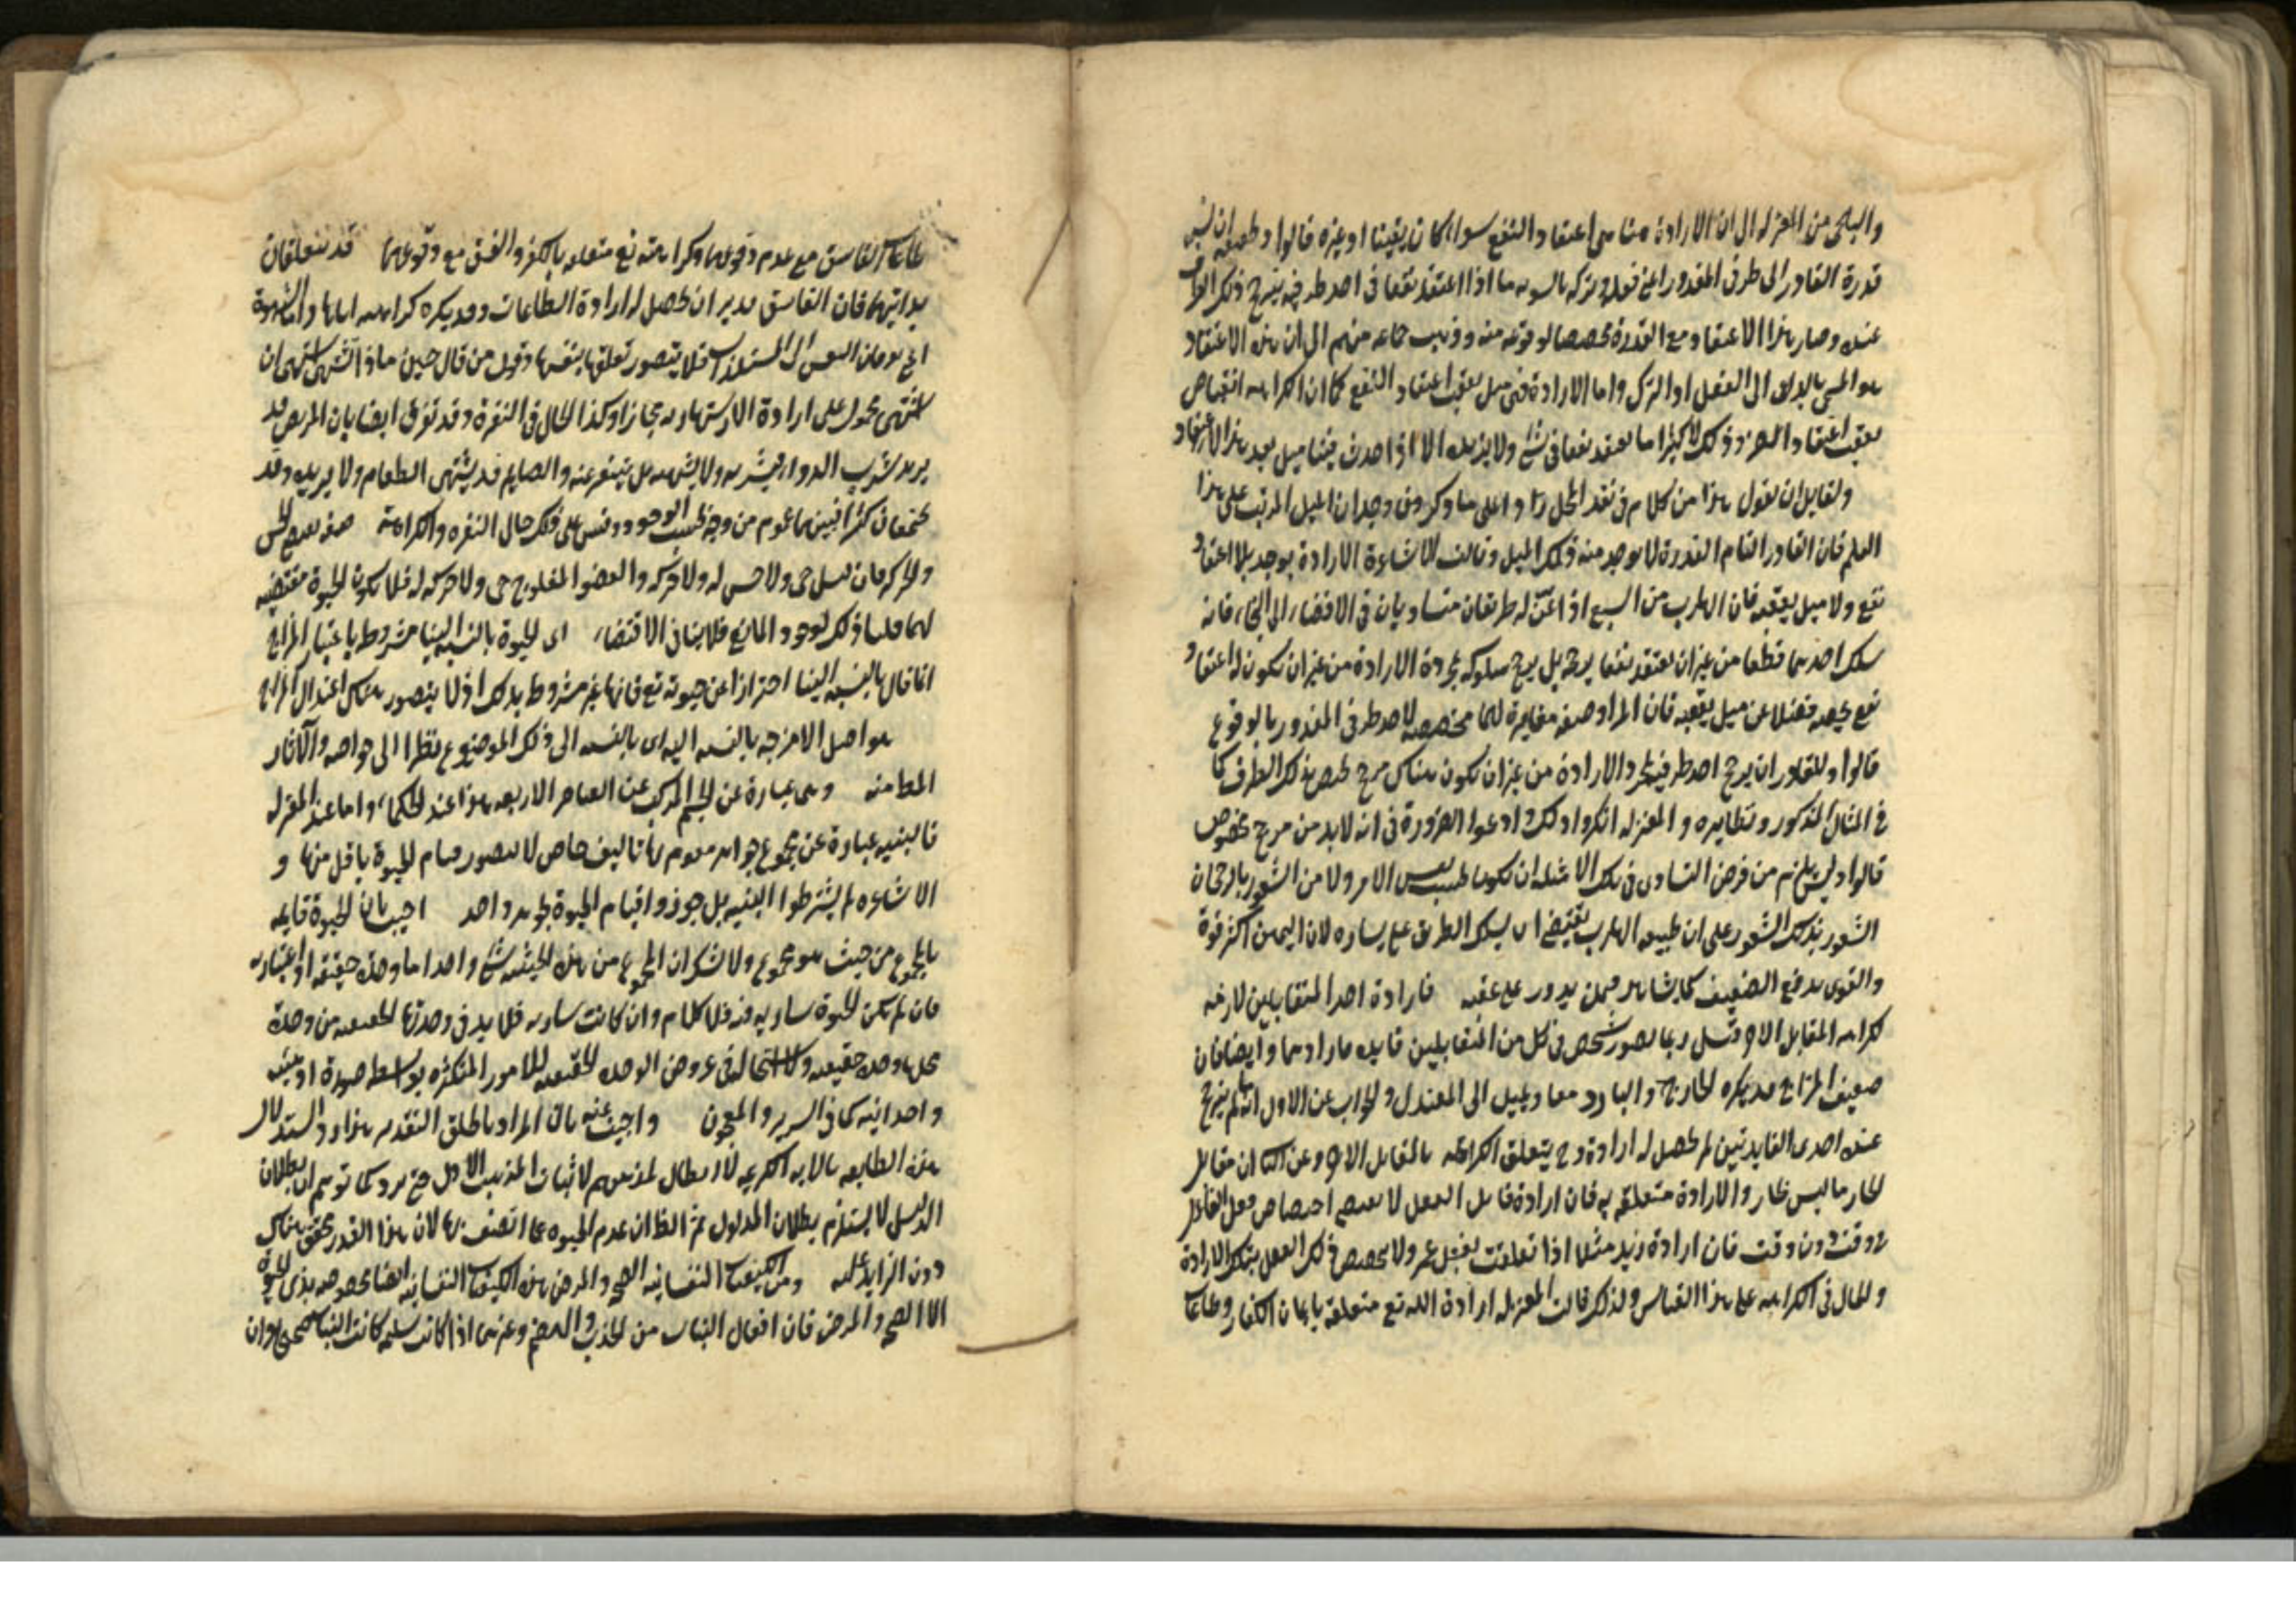 والبلخى من المعتزله الى ان الارادة هنا هى اعتقاد النفع سواء كان يقينا او غيره قالوا و
قدرة القادر الى طرفى المقدور اعنى فعله وتركه بالسويه فاذا اعتقد نفعا فى احد طرفيه يترجح ذلك الطرف
عنده وصار هذا الاعتقاد مع القدرة مخصصا لوقوعه منه وذهب جماعه منهم الى ان هذه الاعتقاد
هو الداعى الى الفعل او الترك واما الارادة فهى ميل يعقب اعتقاد النفع كما ان الكراهه انقباض
يعقب اعتقاد الضرر وذلك لانا كثيرا ما نعتقد نفعا فى شئ ولا نريده الا اذا حدث فينا ميل بعد هذا الاعتقاد
ولقايل ان يقول هذا من كلام فى نقد المحل ردا على ما ذكر وفى وجدان الميل المرتب على هذا
العلم فان القادر التام القدرة لا يوجد منه ذلك الميل وقالت الاشاعرة الارادة يوجد بلا اعتقاد
نفع ولا ميل يعقبه فان الهارب من السبع اذا عن له طريقان متساويان فى الافضاء الى النجاة فانه
يسلك احدهما قطعا من غير ان يعتقد نفعا يرجحه بل يرجح سلوكه بمجرده الارادة من غير ان يكون له اعتقاد
نفع يخصه فضلا عن ميل يعقبه فان المراد صفه مغايرة لهما مخصصه لاحد طرفى المقدور بالوقوع
قالوا وللقادر ان يرجح احد طرفيه بمجرد الارادة من غير ان يكون هناك مرجح يخص ذلك الطرف كما
فى المثال المذكور ونظايره والمعتزله انكروا ذلك وادعوا الضرورة فى انه لا بد من مرجح مخصوص
قالوا وليس يلزم من فرض التساوى فى تلك الامثله ان يكون بحسب نفس الامر ولا من الشعور بالرجحان
الشعور بذلك الشعور على ان طبيعه الهارب يقتضى ان يسلك الطريق على يساره لان اليمين اكثر قوة
والقوى يدفع الضعيف كما يشاهد فيمن يدور على عقبه فارادة احد المتقابلين لازمه
كراهه المقابل الاخر وقيل ربما تصور شخص فى كل من المتقابلين فايده فارادهما وايضا فان
ضعيف المزاج قد يكره الحار والبارد معا ويميل الى المعتدل والجواب عن الاول انه ما لم يترجح
عنده احدى الفايدتين لم يحصل له ارادة وح يتعلق الكراهه بالمقابل الاخر وعن الثانى ان مقابل
الحار ما ليس بحار والارادة متعلقه به فان ارادة فاعل الفعل لا تقتضى اختصاص فعل الفاعل
بوقت دون وقت فان ارادة زيد مثلا اذا تعلقت بفعل عمرو لا يخصص ذلك الفعل بتلك الارادة
والحال فى الكراهه على هذا القياس ولذلك قالت المعتزله ارادة الله تع متعلقه بايمان الكفار وطاعات
طاعات الفاسق مع عدم وقوعهما وكراهته تع متعلقه بالكفر والفسق مع وقوعهما قد يتعلقان
بذاتيهما فان الفاسق يريد ان يحصل له ارادة الطاعات وقد يكره كراهته اياها واما الشهوة
اعنى توقان النفس الى المستلذات فلا يتصور تعلقها بنفسها وقول من قال حين ماذا تشتهى اشتهى ان
اشتهى محمول على ارادة الاشتهاء مجازا وكذا الحال فى النفرة وقد تفرق ايضا بان المريض قد
يريد شرب الدواء فيشربه ولا يشتهيه بل يتنفر عنه والصايم قد يشتهى الطعام ولا يريده وقد
يجتمعان كثيرا فبينهما عموم من وجه بحسب الوجود وقس على ذلك حال النفره والكراهه صفه تقتضى الحس
والحركه فان قيل حى ولا حس له ولا حركه والعضو المفلوج حى ولا حركه له فلا يكون الحيوة مقتضيه
لهما قلنا ذلك لوجود المانع فلا ينافى الاقتضاء اى الحيوة بالنسبه الينا مشروط باعتبار المزاج
انما قال بالنسبه الينا احترازا عن حيوته تع فانها غير مشروط بذلك اذ لا يتصور هناك اعتدال المزاج
هو اصل الامزجه بالنسبه اليه اى بالنسبه الى ذلك الموضوع نظرا الى خواصه والآثار
المطلوبه منه وهى عبارة عن الجسم المركب عن العناصر الاربعه هذا عند الحكماء واما عند المعتزله
فالبنيه عبارة عن مجموع جواهر يقوم بها تاليف خاص لا يتصور قيام الحيوة باقل منها و
الاشاعره لم يشترطوا البنيه بل جوزوا قيام الحيوة بجوهر واحد اجيب بان الحيوة قايمه
بالمجموع من حيث هو مجموع ولا شك ان المجموع من هذه الحيثيه شئ واحد اما وحدة حقيقيه او اعتباريه
فان لم يكن الحيوة ساريه فيه فلا كلام وان كانت ساريه فلا بد فى وحدتها الحقيقيه من وحدة
محلها وحدة حقيقيه ولا استحاله فى عروض الوحده الحقيقيه للامور المتكثره بواسطه صورة او هيئه
وحدانيه كما فى السرير والمعجون واجيب عنه بان المراد باطلاق التقدمه هذا رد استدلال
هذه الطايفه بالايه الكريمه لا ابطال لمذهبهم لاثبات المذهب الاول حتى يرد كما توهم ان بطلان
الدليل لا يستلزم بطلان المدلول ثم الظ ان عدم الحيوه عما اتصف بها لان هذا القدر محقق هناك
دون الزايد عليه ومن الكيفيات النفسانيه الصحه والمرض هذه الكيفيات النفسانيه ايضا مخصوصه بذى الحيوة
الا الصحه والمرض فان افعال النبات من الجذب والهضم وغيرهما اذا كانت سليمه كانت النبات صحيحا وان